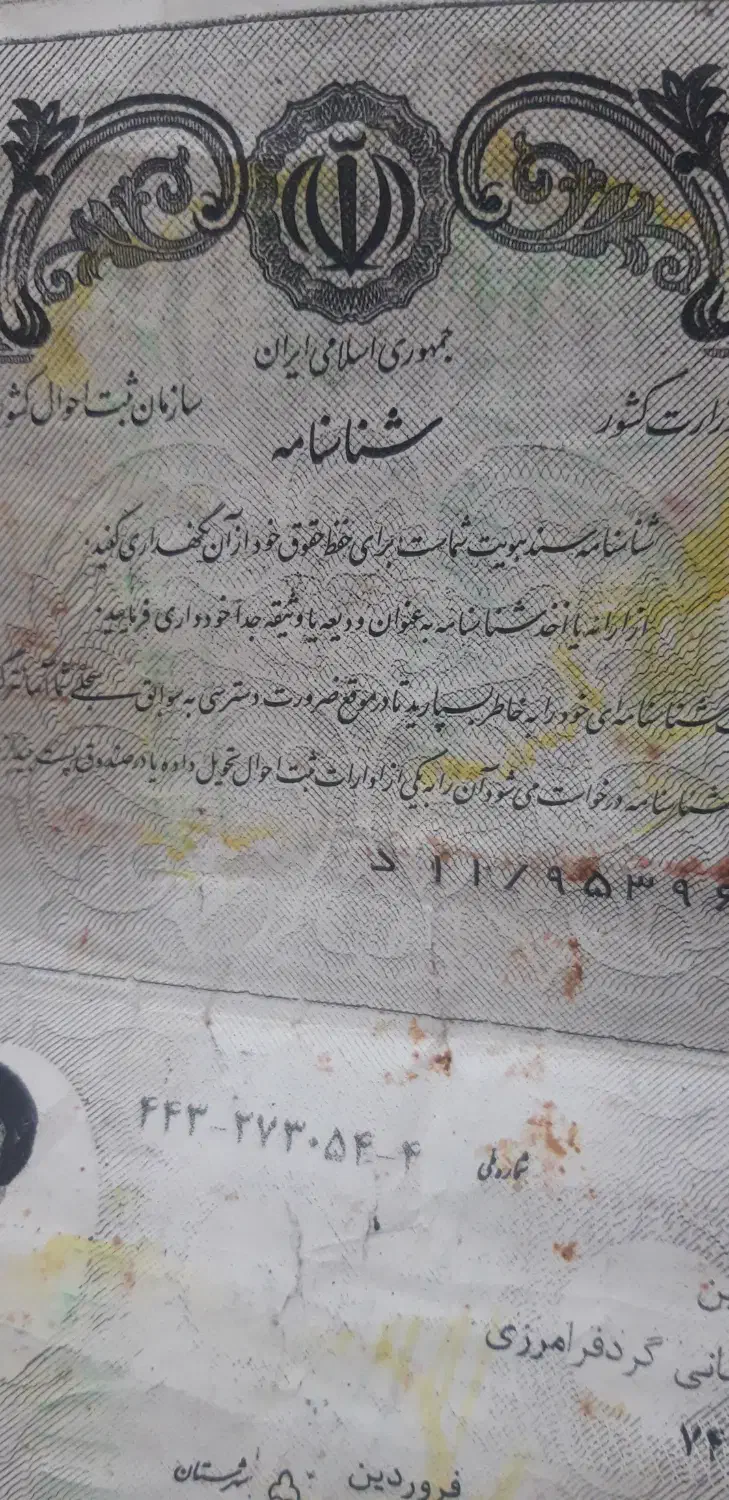 جمهوری اسلامی ایران
سازمان ثبت احوال کشور
وزارت کشور
شناسنامه
شناسنامه سند هویت شماست برای حفظ حقوق خود از آن نگهداری کنید.
از ارائه یا اخذ شناسنامه به عنوان ودیعه یا وثیقه جداً خودداری فرمایید.
شناسنامه‌ای خود را به خاطر بسپارید تا در موقع ضرورت دسترسی به سوابق سجلی شما
شناسنامه درخواست می‌شود آن را به یکی از ادارات ثبت احوال تحویل داده یا در صندوق پست
د ۱۱/۹۵۳۹۶
شماره ملی
۴۴۳-۲۷۳۰۵۴-۴
گردفرامرزی
۷۴
فروردین
شهرستان